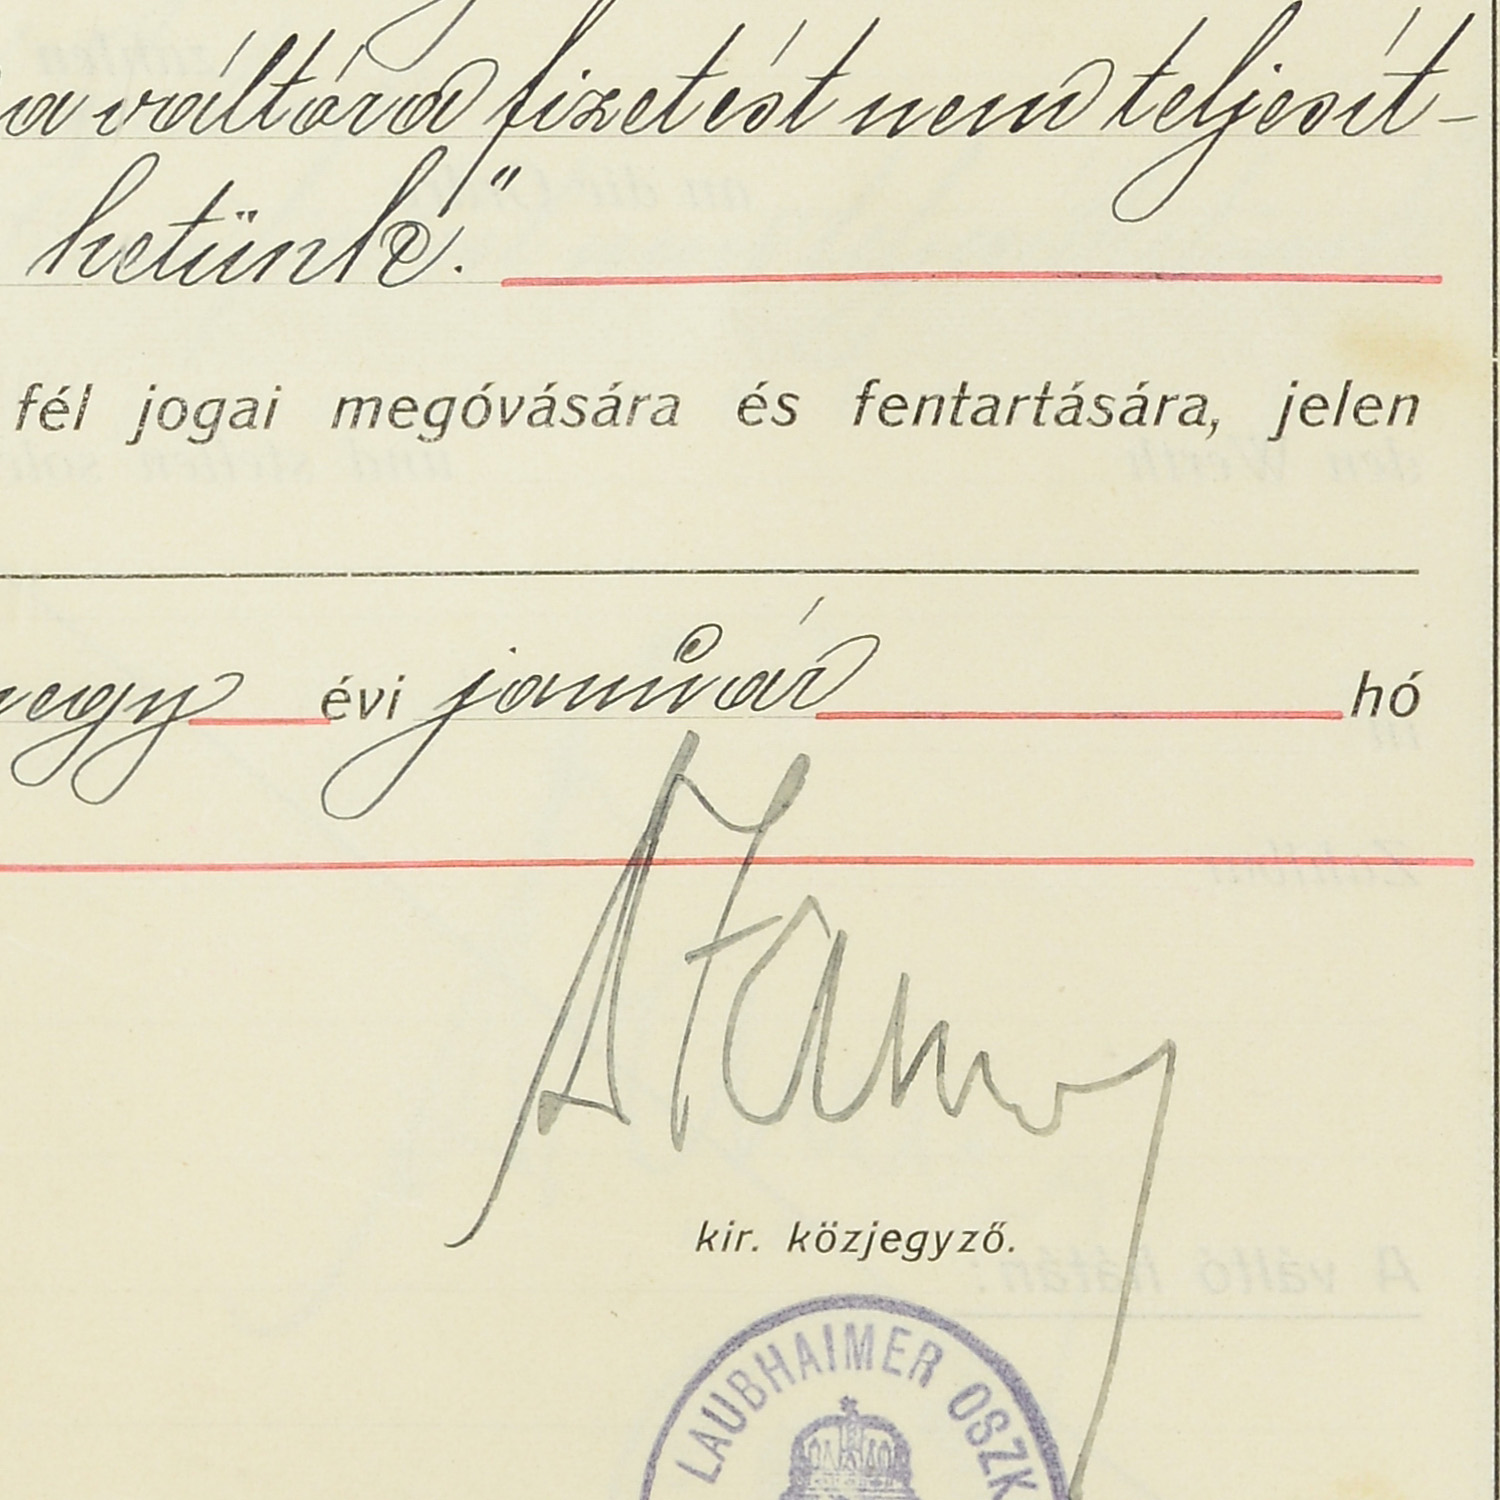 a váltóra fizetést nem teljesít-
hetünk."
fél jogai megóvására és fentartására, jelen
négy évi január hó
kir. közjegyző.
LAUBHAIMER OSZK
A váltó hátán: